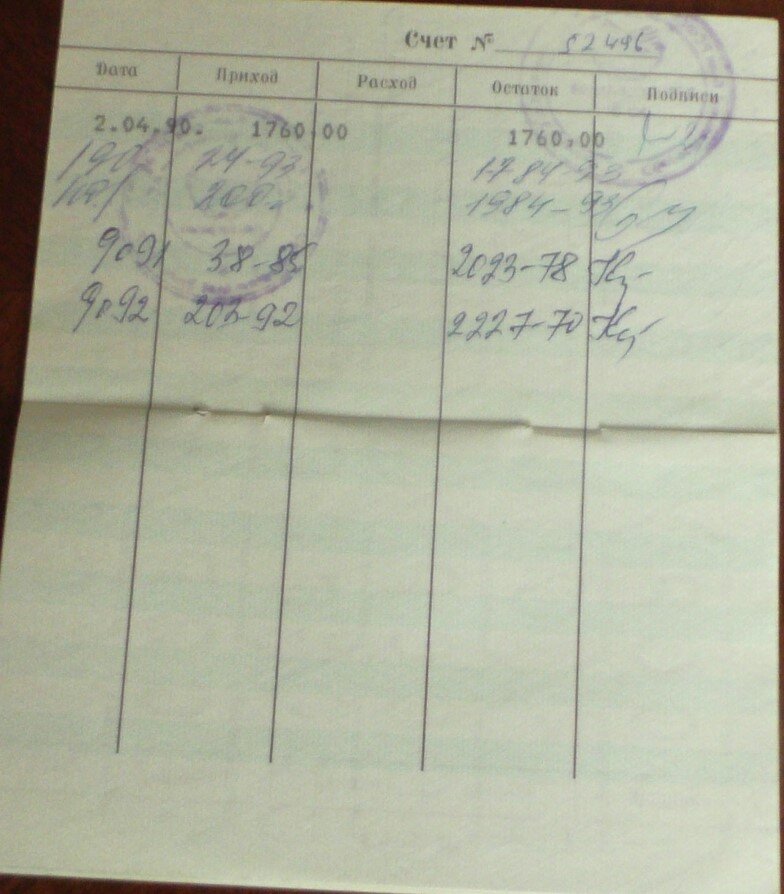 Счет № 52496
Дата Приход Расход Остаток Подписи
2.04.90. 1760,00 1760,00
24-93 1784-93
200 1984-93
9091 38-85 2023-78
9092 203-92 2227-70